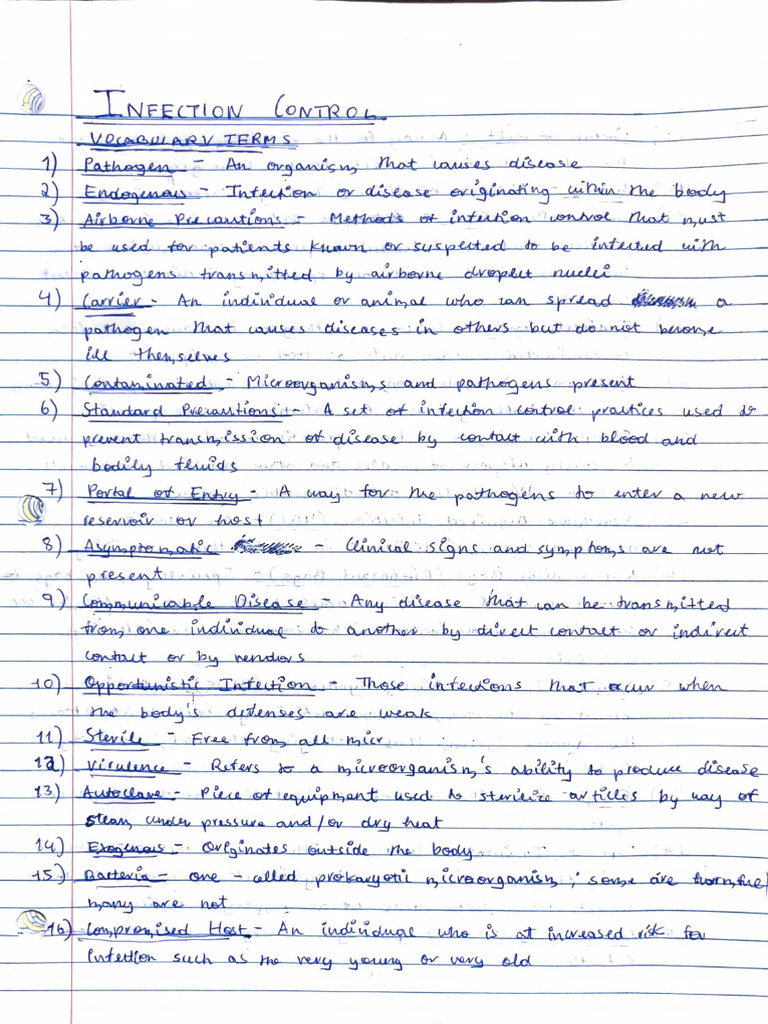 INFECTION CONTROL
VOCABULARY TERMS
1) Pathogen - An organism that causes disease
2) Endogenous - Infection or disease originating within the body
3) Airborne Precautions - Methods of infection control that must
be used for patients known or suspected to be infected with
pathogens transmitted by airborne droplet nuclei
4) Carrier - An individual or animal who can spread a
pathogen that causes diseases in others but do not become
ill themselves
5) Contaminated - Microorganisms and pathogens present
6) Standard Precautions - A set of infection control practices used to
prevent transmission of disease by contact with blood and
bodily fluids
7) Portal of Entry - A way for the pathogens to enter a new
reservoir or host
8) Asymptomatic - Clinical signs and symptoms are not
present
9) Communicable Disease - Any disease that can be transmitted
from one individual to another by direct contact or indirect
contact or by vendors
10) Opportunistic Infection - Those infections that occur when
the body's defenses are weak
11) Sterile - Free from all micr
12) Virulence - Refers to a microorganism's ability to produce disease
13) Autoclave - Piece of equipment used to sterilize articles by way of
steam under pressure and/or dry heat
14) Exogenous - Originates outside the body
15) Bacteria - one - celled prokaryotic microorganism; some are harmful
many are not
16) Compromised Host - An individual who is at increased risk for
infection such as the very young or very old